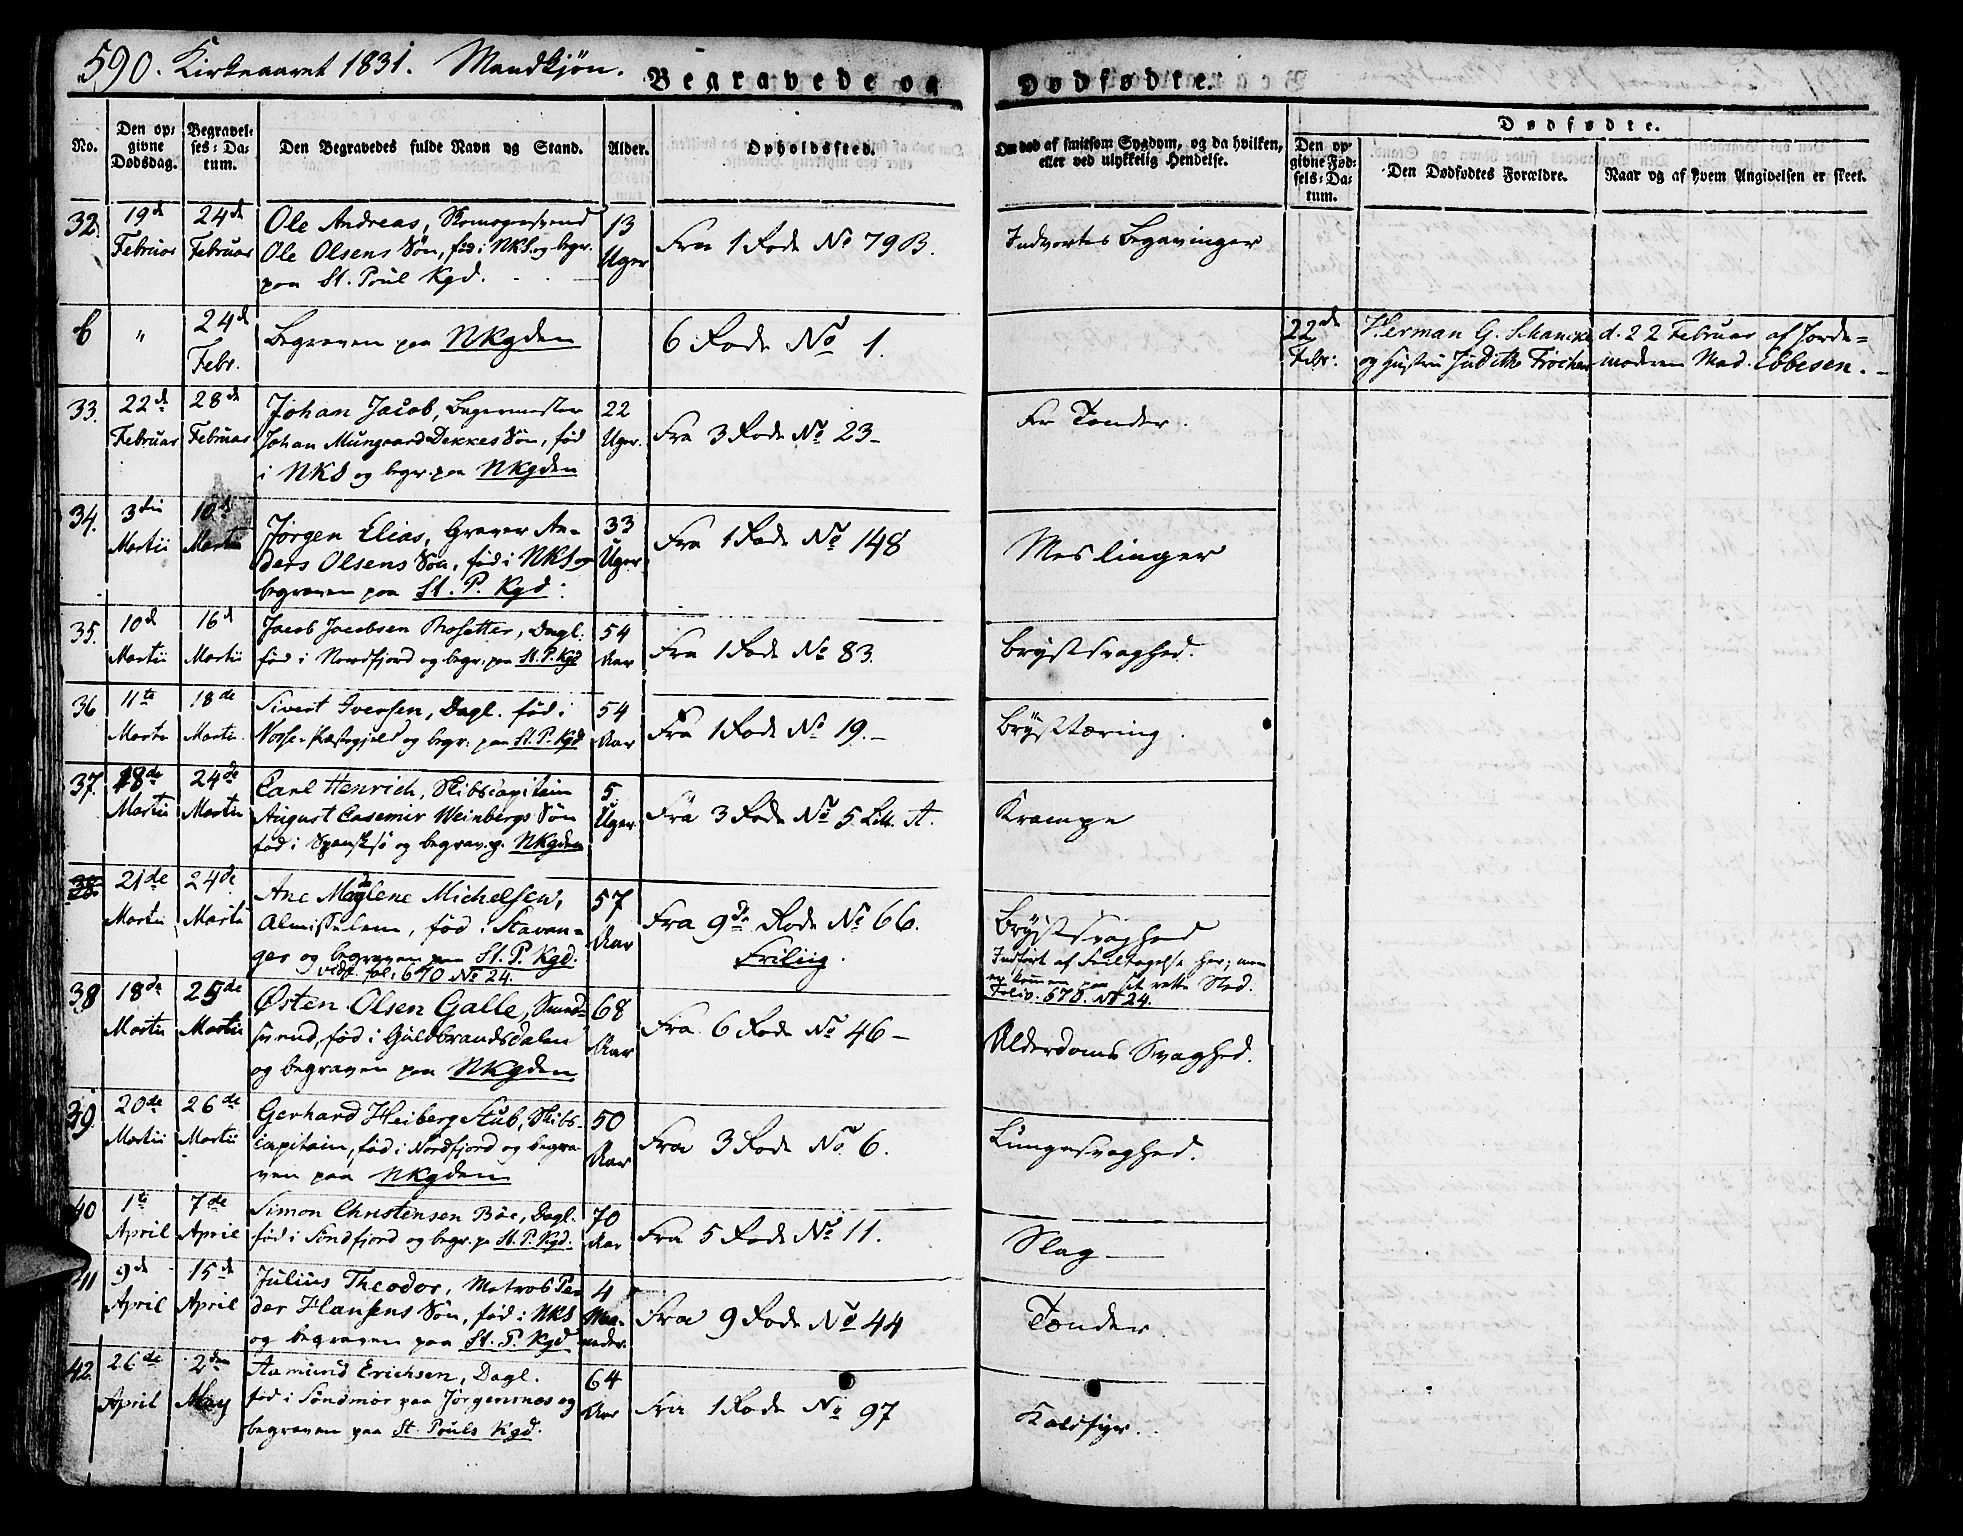 590. Kirkeaaret 1831. Mandkjön. Begravede og Dødfødte.
No.
Den op=
givne
Dødsdag.
Begravel=
ses=Da=
tum.
Den Begravedes fulde Navn og Stand.
Alder.
Opholdssted.
Om død af smitsom Sygdom, og da hvilken,
eller ved ulykkelig Hendelse.
Dødfødte.
Den op=
givne Fød=
sels=Da=
tum.
Den Dødfødtes Forældre.
Naar og af hvem Angivelsen er skeet.
32.
19de
Februar
24de
Februar
Ole Andreas, Skomagersvend
Ole Olsens Søn, fød i NKS. og begr.
paa St. Poul Kgd.
13
Uger
Fra 1 Rode No 79 B.
Indvortes Begavinger
6
"
24de
Febr.
Begraven paa NKgden
6 Rode No 1.
22de
Febr:
Herman G. Schancke
og Hustru Judithe
d. 22 Februar af Jorde=
moderen Mad. Ebbesen.
33.
22de
Februar
28de
Februar
Johan Jacob, Bagermester
Johan Mungaard Dekkes Søn, fød
i NKS og begr. paa NKgden
22
Uger.
Fra 3 Rode No 23
Er Tænder.
34.
3die
Martii
10de
Martii
Jørgen Elias, Graver An=
ders Olsens Søn, fød i NKS og
begraven paa St. P. Kgd.
33
Uger
Fra 1 Rode No 148
Meslinger
35.
10de
Martii
16de
Martii
Jacob Jacobsen Rosetter, Dagl.
fød i Nordfjord og begr. paa St. P. Kgd
54
Aar
Fra 1 Rode No 83.
Brystsvaghed.
36
11te
Martii
18de
Martii
Sivert Iversen, Dagl. fød i
Vosse-Præstegjeld og begr. paa St. P. Kgd
54
Aar
Fra 1 Rode No 19.
Brysttæring.
37.
18de
Martii
24de
Martii
Carl Henrich, Skibscapitain
August Casemir Weinbergs Søn
fød i og begrav. p. NKgden
5
Uger
Fra 3 Rode No 5 Litt. A.
Krampe
38.
21de
Martii
24de
Martii
Ane Magdlene Michelsen,
Almislem, fød i Stavan=
ger og begraven paa St. P. Kgd.
vide fol. 670 No 24.
57
Aar
Fra 9de Rode No 66.
Frilig.
Brystsvaghed
Indført af Feiltagelse her; men
er kommen paa sit rette Sted.
Folio. 670. No 24.
38
18de
Martii
25de
Martii
Østen Olsen Galle,
svend, fød i Guldbrandsdalen
og begraven paa NKgden
68
Aar
Fra 6 Rode No 46
Alderdoms Svaghed.
39.
20de
Martii
26de
Martii
Gerhard Heiberg Stub, Skibs-
capitain, fød i Nordfjord og begra-
ven paa NKgden
50
Aar
Fra 3 Rode No. 6.
Lungesvaghed.
40
1te
April
7de
April
Simon Christensen Böe, Dagl.
fød i Söndfjord og begr. pa St. P. Kgd.
70
Aar
Fra 5 Rode No 11.
Slag
41
9de
April
15de
April
Julius Theodor, Matros Pe
der Hansens Søn, fød i NKS
og begraven paa St. P. Kgd
4
Maa-
neder.
Fra 9 Rode No 44
Tænder.
42.
26de
April
2den
May
Aamund Erichsen, Dagl.
fød i Söndmör paa Jörgensnæs og
begraven paa St Pouls Kgd.
64
Aar
Fra 1 Rode No 97
Koldfyr.